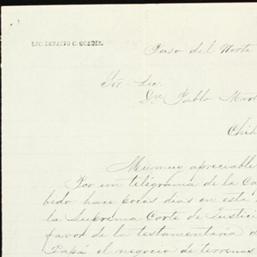 Paso del Norte
Sor Lic.
Dn. Pablo
Chih
Mi muy apreciable
Por un telegrama de la Ca
bido hace pocos dias en esta
la Suprema Corte de Justicia
favor de la testamentaria
Papá el negocio de terrenos